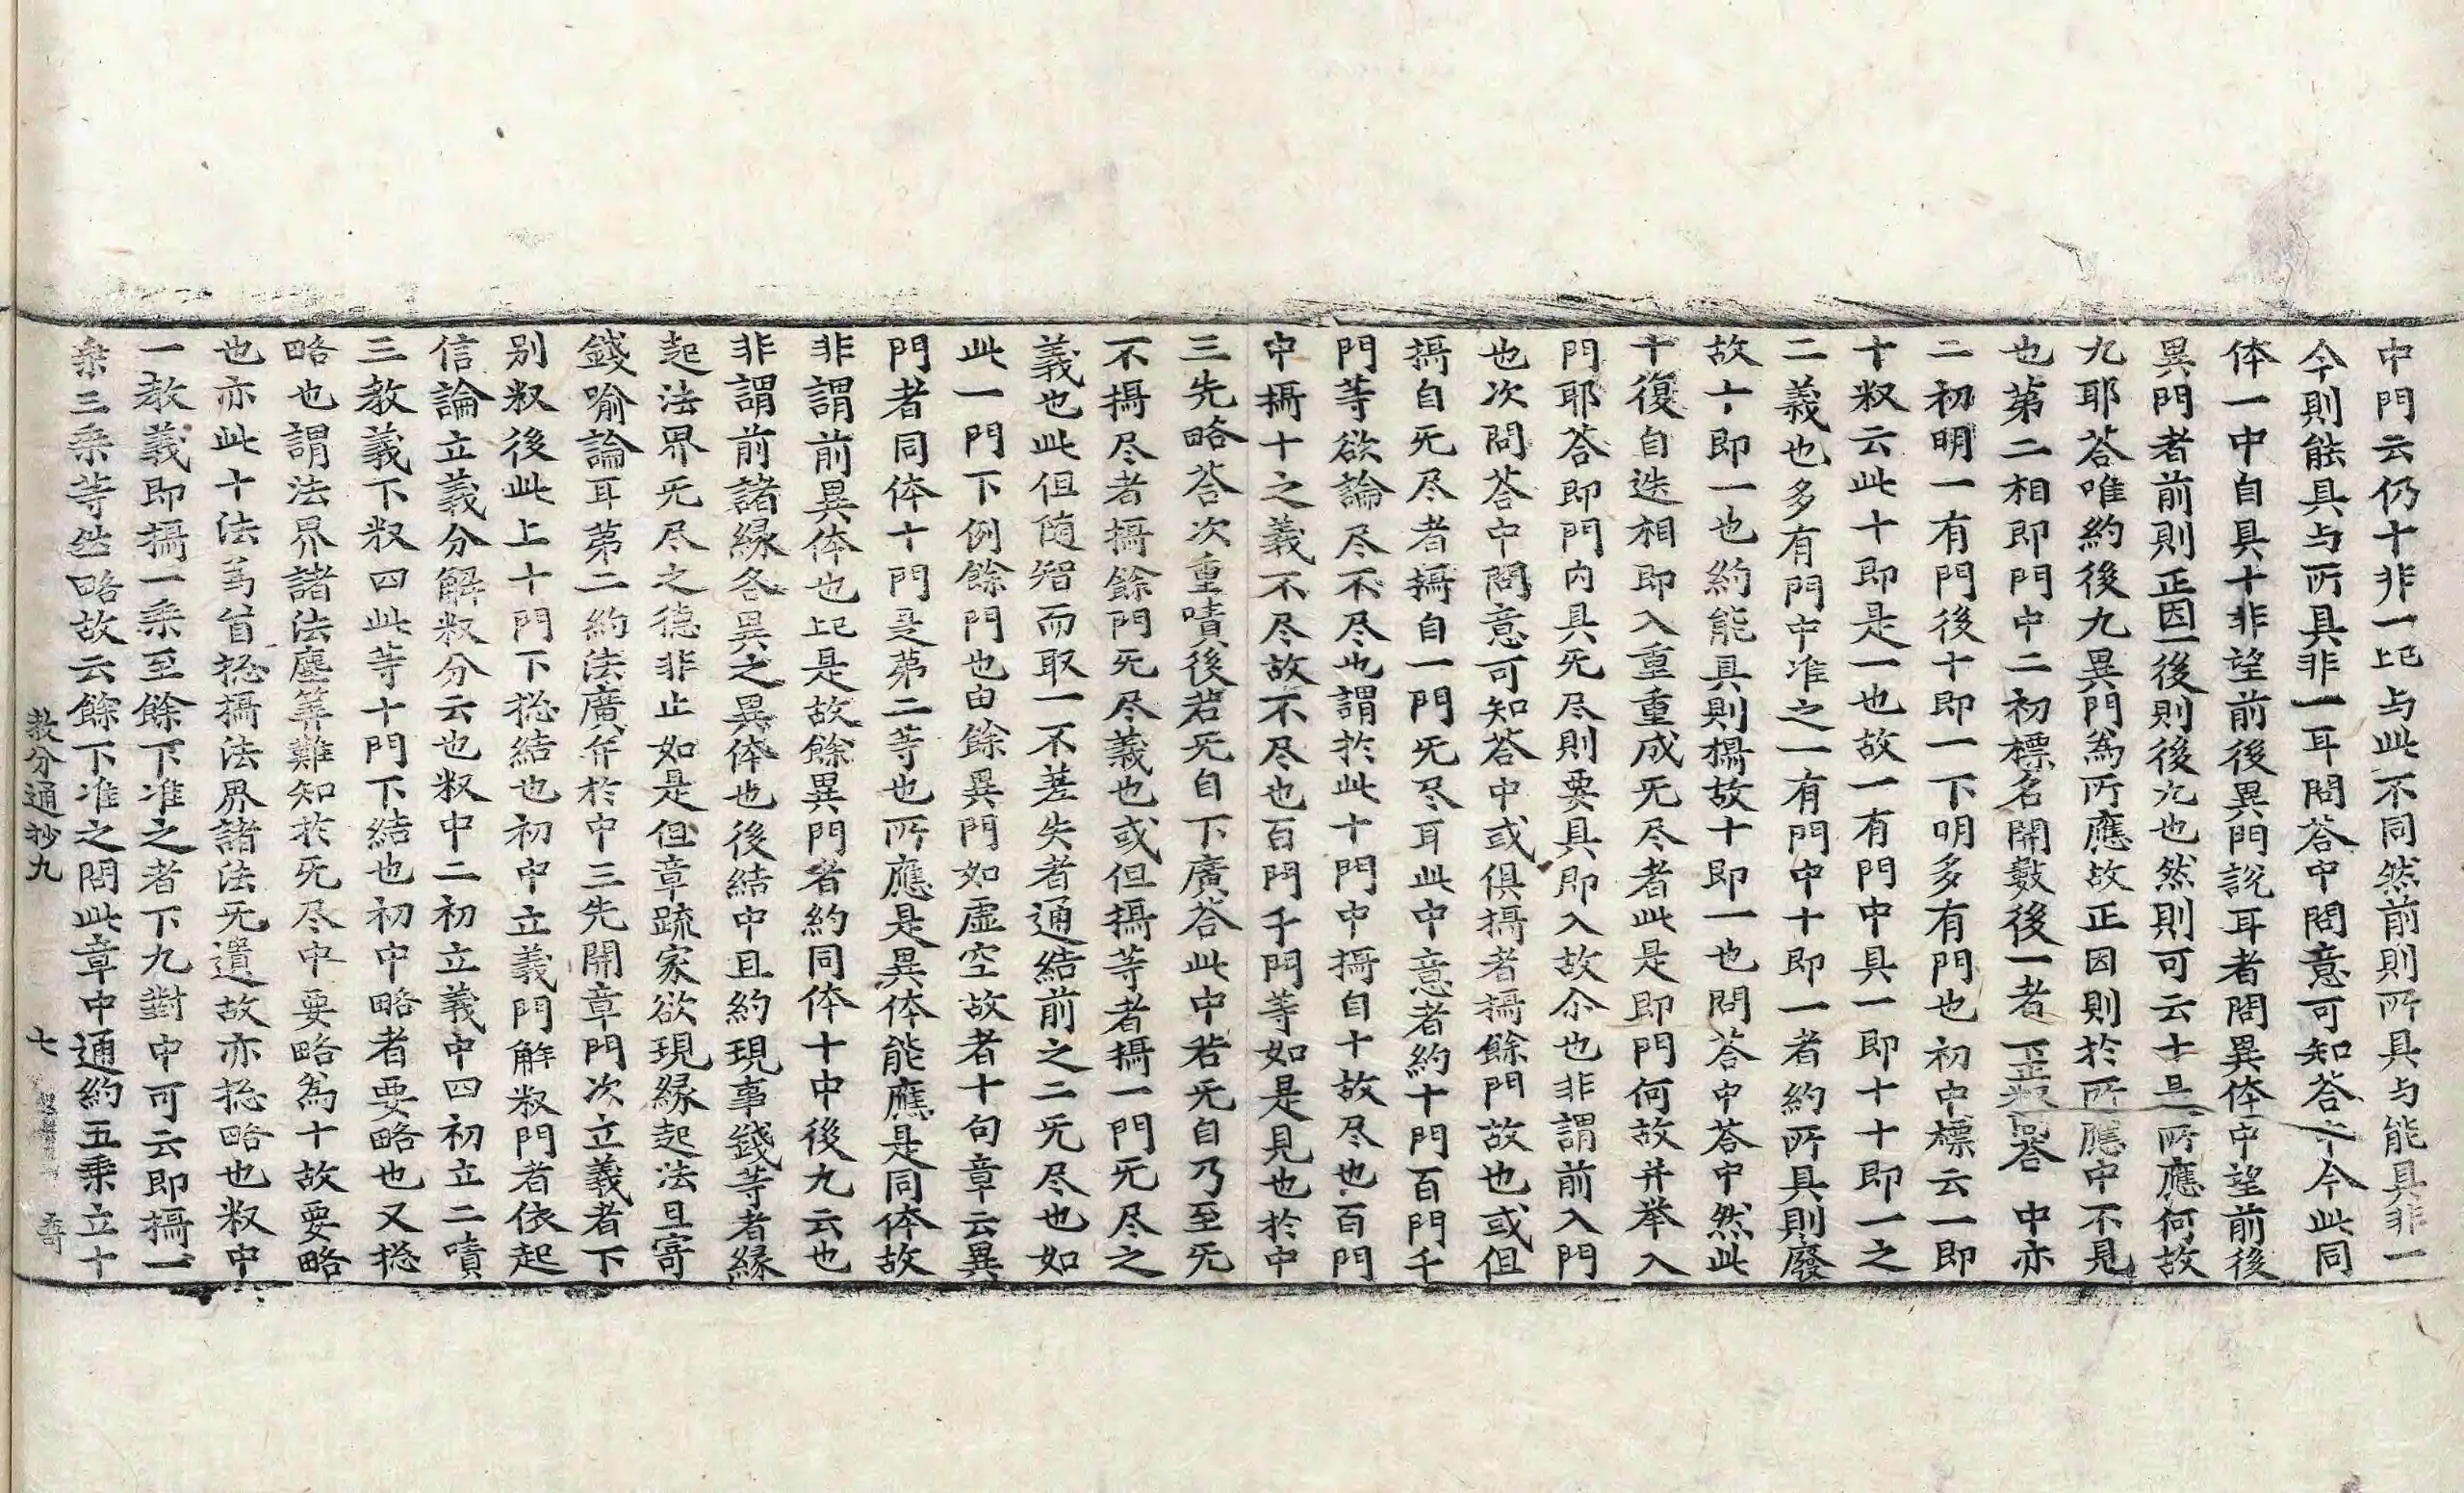 中門云仍十非一也与此不同然前則所具与能具非一
今則能具与所具非一耳問荅中問意可知荅中今此同
体一中自具十非望前後異門說耳者問異体中望前後
異門者前則正因一後則後九也然則可云十是所應何故
九耶荅唯約後九異門為所應故正因則於所應中不見
也第二相即門中二初標名開數後一者正釈問荅中亦
二初明一有門後十即一下明多有門也初中標云一即
十釈云此十即是一也故一有門中具一即十十即一之
二義也多有門中准之一有門中十即一者約所具則廢
故十即一也約能具則攝故十即一也問荅中荅中然此
十復自迭相即入重重成旡尽者此是即門何故并举入
門耶荅即門內具旡尽則要具即入故尒也非謂前入門
也次問荅中問意可知荅中或俱攝者攝餘門故也或但
攝自旡尽者攝自一門旡尽耳此中意者約十門百門千
門等欲論尽不尽也謂於此十門中攝自十故尽也百門
中攝十之義不尽故不尽也百門千門等如是見也於中
三先略荅次重嘖後若旡自下廣荅此中若旡自乃至旡
不攝尽者攝餘門旡尽義也或但攝等者攝一門旡尽之
義也此但随智而取一不差失者通結前之二旡尽也如
此一門下例餘門也由餘異門如虛空故者十句章云異
門者同体十門是第二等也所應是異体能應是同体故
非謂前異体也也是故餘異門者約同体十中後九云也
非謂前諸縁各異之異体也後結中且約現事錢等者縁
起法界旡尽之德非止如是但章䟽家欲現縁起法且寄
錢喻論耳第二約法廣弁於中三先開章門次立義者下
別釈後此上十門下捴結也初中立義門解釈門者依起
信論立義分解釈分云也釈中二初立義中四初立二嘖
三教義下釈四此等十門下結也初中略者要略也又捴
略也謂法界諸法塵筭難知於旡尽中要略為十故要略
也亦此十法為首捴攝法界諸法旡遺故亦捴略也釈中
一教義即攝一乘至餘下准之者下九對中可云即攝一
乘三乘等些略故云餘下准之問此章中通約五乘立十
教分通抄九　七